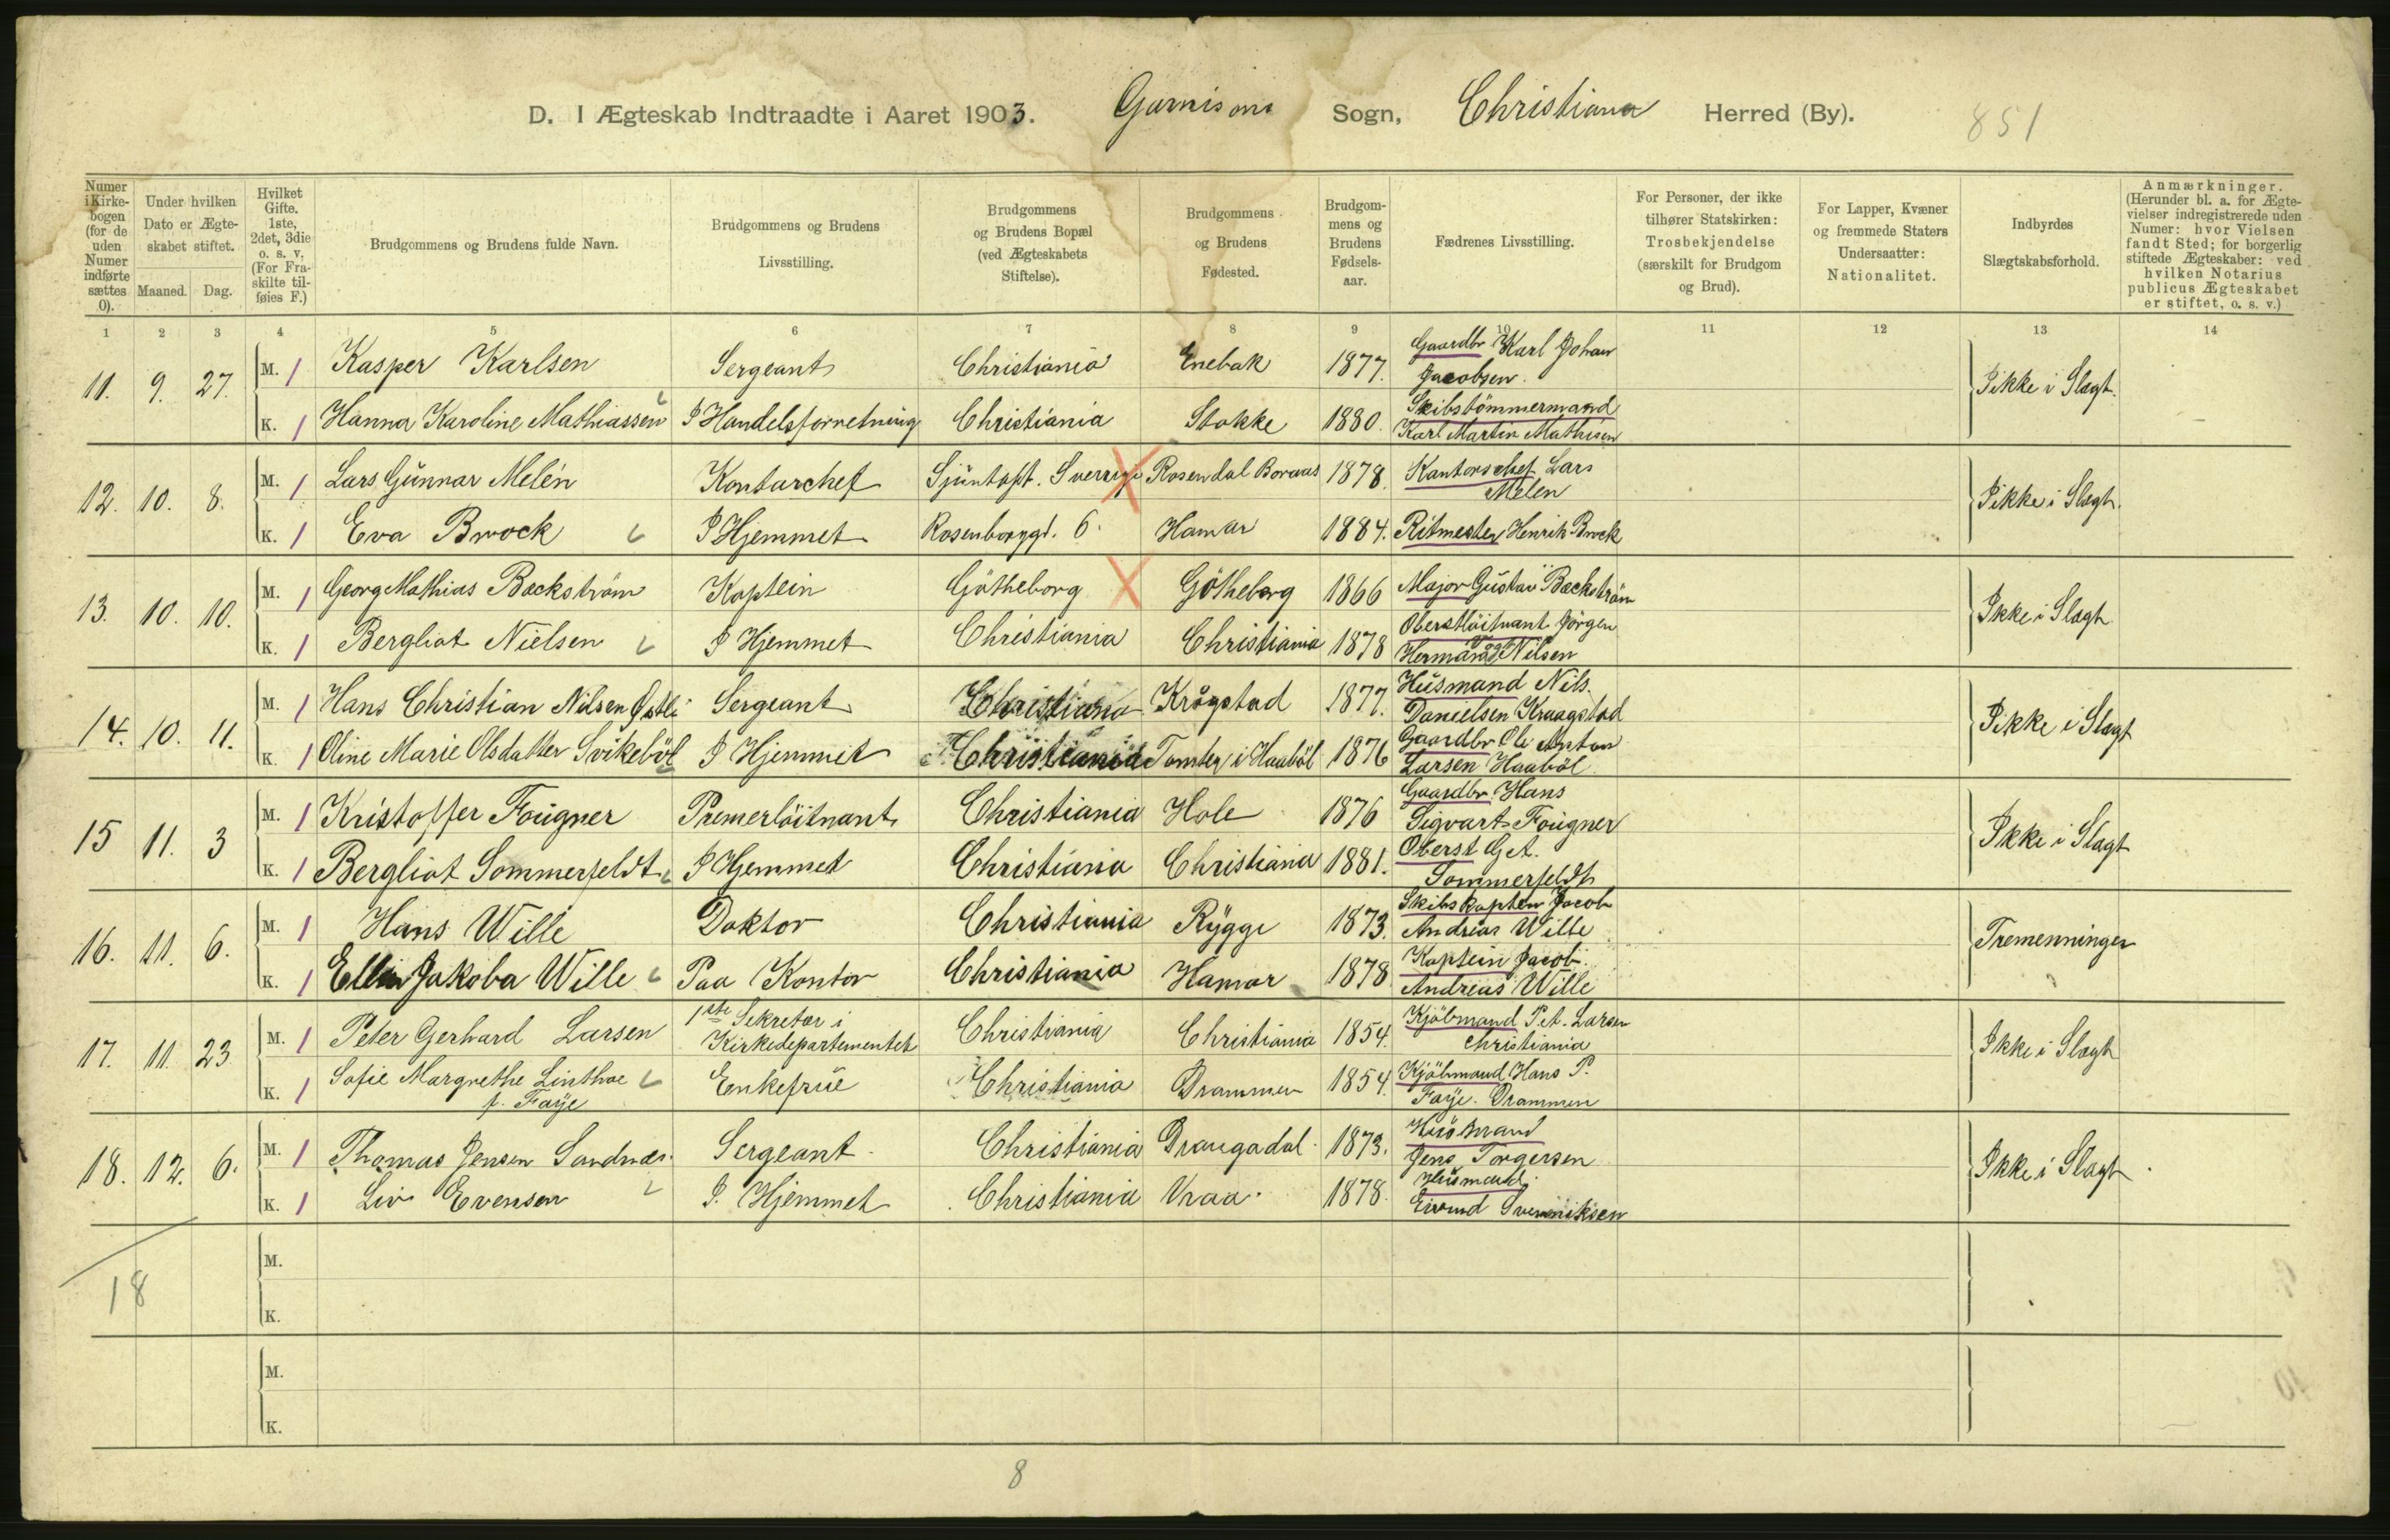 D. I Ægteskab Indtraadte i Aaret 1903. Garnisons Sogn, Christiania Herred (By). 851
Numer i Kirkebogen (for de uden Numer indførte sættes 0).
Under hvilken Dato er Ægteskabet stiftet.
Maaned. Dag.
Hvilket Gifte. 1ste, 2det, 3die o. s. v. (For Fraskilte tilføies F.)
Brudgommens og Brudens fulde Navn.
Brudgommens og Brudens Livsstilling.
Brudgommens og Brudens Bopæl (ved Ægteskabets Stiftelse).
Brudgommens og Brudens Fødested.
Brudgommens og Brudens Fødselsaar.
Fædrenes Livsstilling.
For Personer, der ikke tilhører Statskirken: Trosbekjendelse (særskilt for Brudgom og Brud).
For Lapper, Kvæner og fremmede Staters Undersaatter: Nationalitet.
Indbyrdes Slægtskabsforhold.
Anmærkninger. (Herunder bl. a. for Ægtevielser indregistrerede uden Numer: hvor Vielsen fandt Sted; for borgerlig stiftede Ægteskaber: ved hvilken Notarius publicus Ægteskabet er stiftet, o. s. v.)
1 2 3 4 5 6 7 8 9 10 11 12 13 14
11. 9. 27. M. 1 Kasper Karlsen Sergeant Christiania Enebak 1877. Gaardbr Karl Johan Jacobsen. Ikke i Slægt.
K. 1 Hanna Karoline Mathiassen I Handelsforretning Christiania Stokke 1880. Skibstömmermand Karl Martin Mathisen
12. 10. 8. M. 1 Lars Gunnar Melén Kontorchef Sjuntoft. Sverrige Rosendal Boraas 1878. Kontorschef Lars Melen Ikke i Slægt.
K. 1 Eva Brock I Hjemmet Rosenborggd. 6. Hamar 1884. Ritmester Henrik Brock
13. 10. 10. M. 1 Georg Mathias Backström Kaptein Götheborg Götheborg 1866 Major Gustav Backström Ikke i Slægt
K. 1 Bergliot Nielsen I Hjemmet Christiania Christiania 1878 Oberstlöitnant Jörgen Herman Nilsen
14. 10. 11. M. 1 Hans Christian Nilsen Østli Sergeant Christiania Krågstad 1877. Husmand Nils Danielsen Kraagstad Ikke i Slægt
K. 1 Oline Marie Olsdatter Svikeböl I Hjemmet Christiania Tomter i Haaböl 1876 Gaardbr Ole Anton Larsen Haaböl
15 11. 3 M. 1 Kristoffer Fougner Premerlöitnant Christiania Hole 1876 Gaardbr. Hans Sigvart Fougner Ikke i Slægt
K. 1 Bergliot Sommerfeldt I Hjemmet Christiania Christiania 1881. Oberst Sommerfeldt
16. 11. 6. M. 1 Hans Wille Doktor Christiania Rygge 1873. Skibskaptein Jacob Andreas Wille Tremenninger
K. 1 Jakoba Wille Paa Kontor Christiania Hamar 1878 Kaptein Jacob Andreas Wille
17. 11. 23 M. 1 Peter Gerhard Larsen 1ste Sekretær i Kirkedepartementet Christiania Christiania 1854. Kjöbmand Pet. Larsen Christiania Ikke i Slægt
K. 1 Sofie Margrethe Linthoe f. Faye Enkefrue Christiania Drammen 1854. Kjöbmand Hans P. Faye. Drammen
18. 12. 6. M. 1 Thomas Jensen Sandnæs Sergeant Christiania Drangadal 1873. Husmand Jens Torgersen Ikke i Slægt
K. 1 Liv Evensen I Hjemmet Christiania Vraa 1878. Husmand. Eivind
18
M.
K.
M.
K.
8